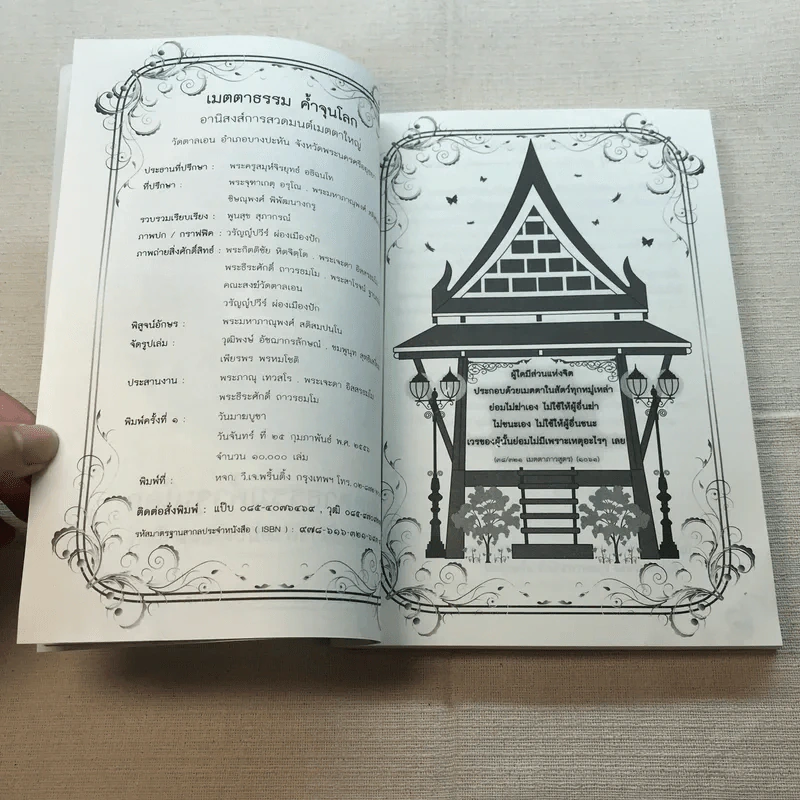 เมตตาธรรม ค้ำจุนโลก
อานิสงส์การสวดมนต์เมตตาใหญ่
วัดตาลเอน อำเภอบางปะหัน จังหวัดพระนครศรีอยุธยา
ประธานที่ปรึกษา : พระครูสมุห์จิรยุทธ์ อธิฉนฺโท
ที่ปรึกษา : พระจุฑาเกตุ อรุโณ , พระมหาภาณุพงศ์
ชิษณุพงศ์ พิพัฒนางกรู
รวบรวมเรียบเรียง : พูนสุข สุภากรณ์
ภาพปก / กราฟฟิค : วรัญญ์ปวีร์ ผ่องเมืองปัก
ภาพถ่ายสิ่งศักดิ์สิทธ์ : พระกิตติชัย หิตจิตฺโต , พระเจะดา
พระธีระศักดิ์ ถาวรธมฺโม , พระสาโรจน์
คณะสงฆ์วัดตาลเอน
วรัญญ์ปวีร์ ผ่องเมืองปัก
พิสูจน์อักษร : พระมหาภาณุพงศ์ สติสมฺปนฺโน
จัดรูปเล่ม : วุฒิพงษ์ อัชฌากรลักษณ์ , ชมพูนุท
เพียรพร พรหมโชติ
ประสานงาน : พระภาณุ เทวสโร , พระเจะดา อิสสรธมฺโม
พระธีระศักดิ์ ถาวรธมฺโม
พิมพ์ครั้งที่ ๑ : วันมาฆบูชา
วันจันทร์ ที่ ๒๕ กุมภาพันธ์ พ.ศ. ๒๕๕๖
จำนวน ๑๐,๐๐๐ เล่ม
พิมพ์ที่ : หจก. วี.เจ.พริ้นติ้ง กรุงเทพฯ โทร.
ติดต่อสั่งพิมพ์ : แป๊บ ๐๘๕-๔๐๗๖๔๖๙ , วุฒิ
รหัสมาตรฐานสากลประจำหนังสือ ( ISBN ) : ๙๗๘-๖๑๖-๓๒๑-
ผู้ใดมีส่วนแห่งจิต
ประกอบด้วยเมตตาในสัตว์ทุกหมู่เหล่า
ย่อมไม่ฆ่าเอง ไม่ใช้ให้ผู้อื่นฆ่า
ไม่ชนะเอง ไม่ใช้ให้ผู้อื่นชนะ
เวรของผู้นั้นย่อมไม่มีเพราะเหตุอะไรๆ เลย
(๓๘/๓๒๑ เมตตาภาวสูตร) (๑๐๖๑)